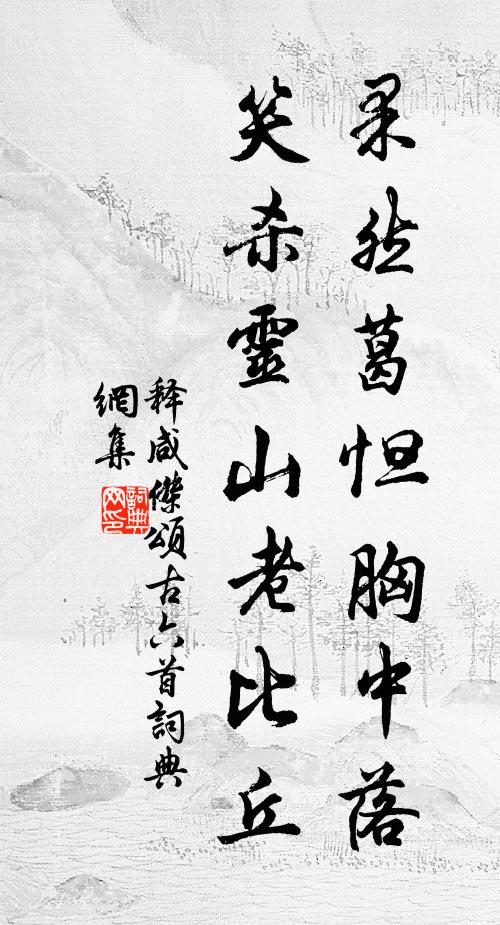 果然葛怛胸中落
笑杀靈山老比丘
释咸傑頌古六首詞典
網集
詞典网印